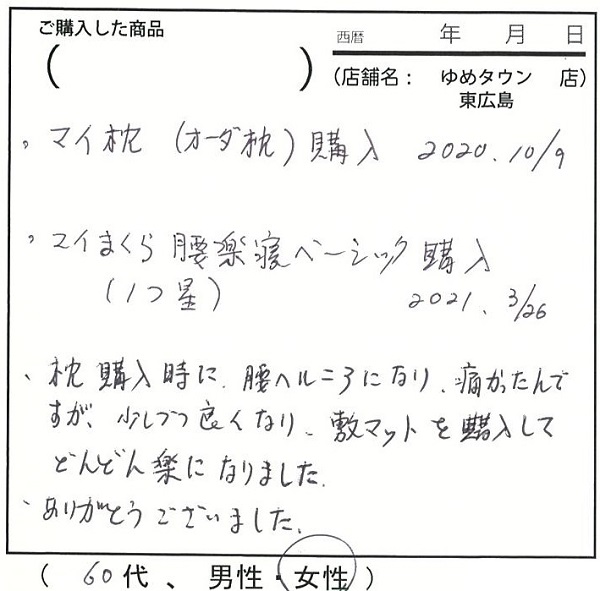 ご購入した商品
西暦 年 月 日
( )
(店舗名: ゆめタウン 店)
東広島
、マイ枕 (オーダ枕) 購入 2020.10/9
、マイまくら 腰楽寝ベーシック 購入
(1つ星) 2021.3/26
、枕購入時に、腰ヘルニアになり、痛かったんで
すが、少しづつ良くなり、敷マットを購入して
どんどん楽になりました。
、ありがとうございました。
( 60代、男性・女性 )